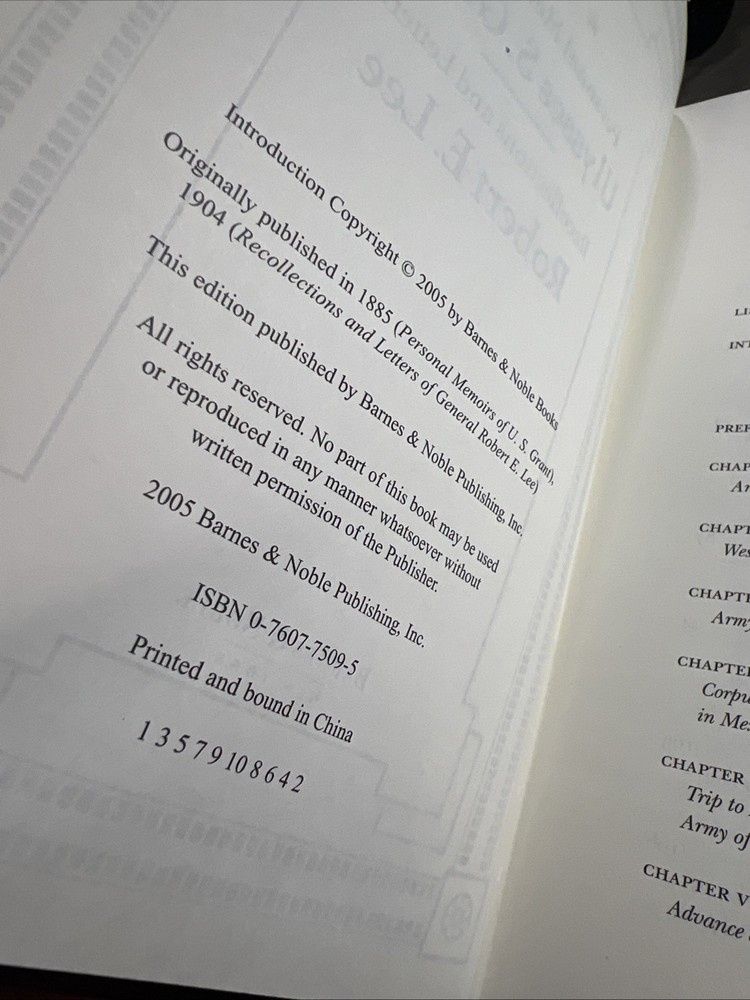 Introduction Copyright © 2005 by Barnes & Noble Books
Originally published in 1885 (Personal Memoirs of U. S. Grant),
1904 (Recollections and Letters of General Robert E. Lee)
This edition published by Barnes & Noble Publishing, Inc.
All rights reserved. No part of this book may be used
or reproduced in any manner whatsoever without
written permission of the Publisher.
2005 Barnes & Noble Publishing, Inc.
ISBN 0-7607-7509-5
Printed and bound in China
1 3 5 7 9 10 8 6 4 2
CHAPTER
Trip to
Army of
CHAPTER V
Advance
in
Army